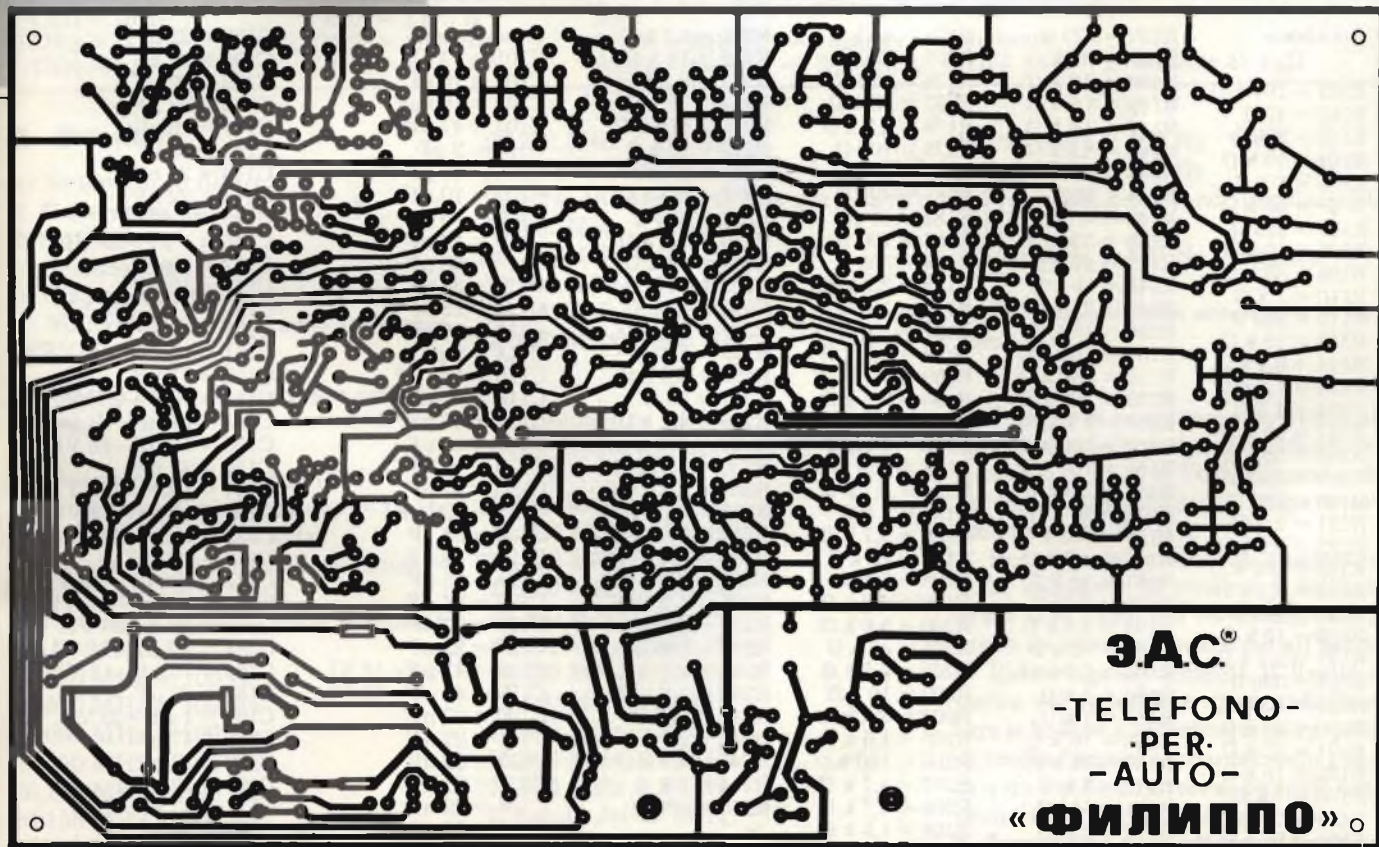 Э.Д.С.®
-TELEFONO-
·PER·
-AUTO-
«ФИЛИППО»